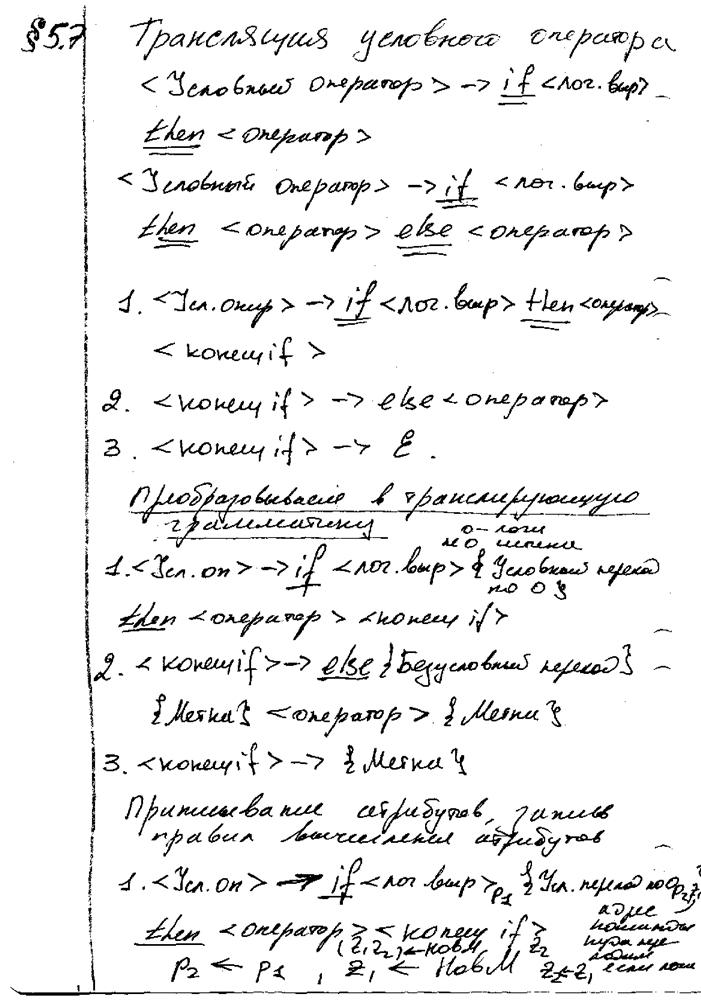 §5.7 Трансляция условного оператора
<Условный оператор> -> if <лог. выр>
then <оператор>
<Условный оператор> -> if <лог. выр>
then <оператор> else <оператор>
1. <Усл. опер> -> if <лог. выр> then <оператор>
<конец if>
2. <конец if> -> else <оператор>
3. <конец if> -> Ɛ.
Преобразовываем в транслирующую
грамматику
0 - ложь
не 0 истина
1. <Усл. оп> -> if <лог. выр> {Условный переход
по 0}
then <оператор> <конец if>
2. <конец if> -> else {Безусловный переход}
{Метка} <оператор> {Метка}
3. <конец if> -> {Метка}
Приписывание атрибутов, запись
правил вычисления атрибутов
1. <Усл. оп> -> if <лог выр>p1 {Усл. переход по 0p2,z1}
адрес
then <оператор> <конец if>z2 команды
(z1,z2) <- НовМ куда
p2 <- p1 , z1 <- НовМ z2 <- z1 если